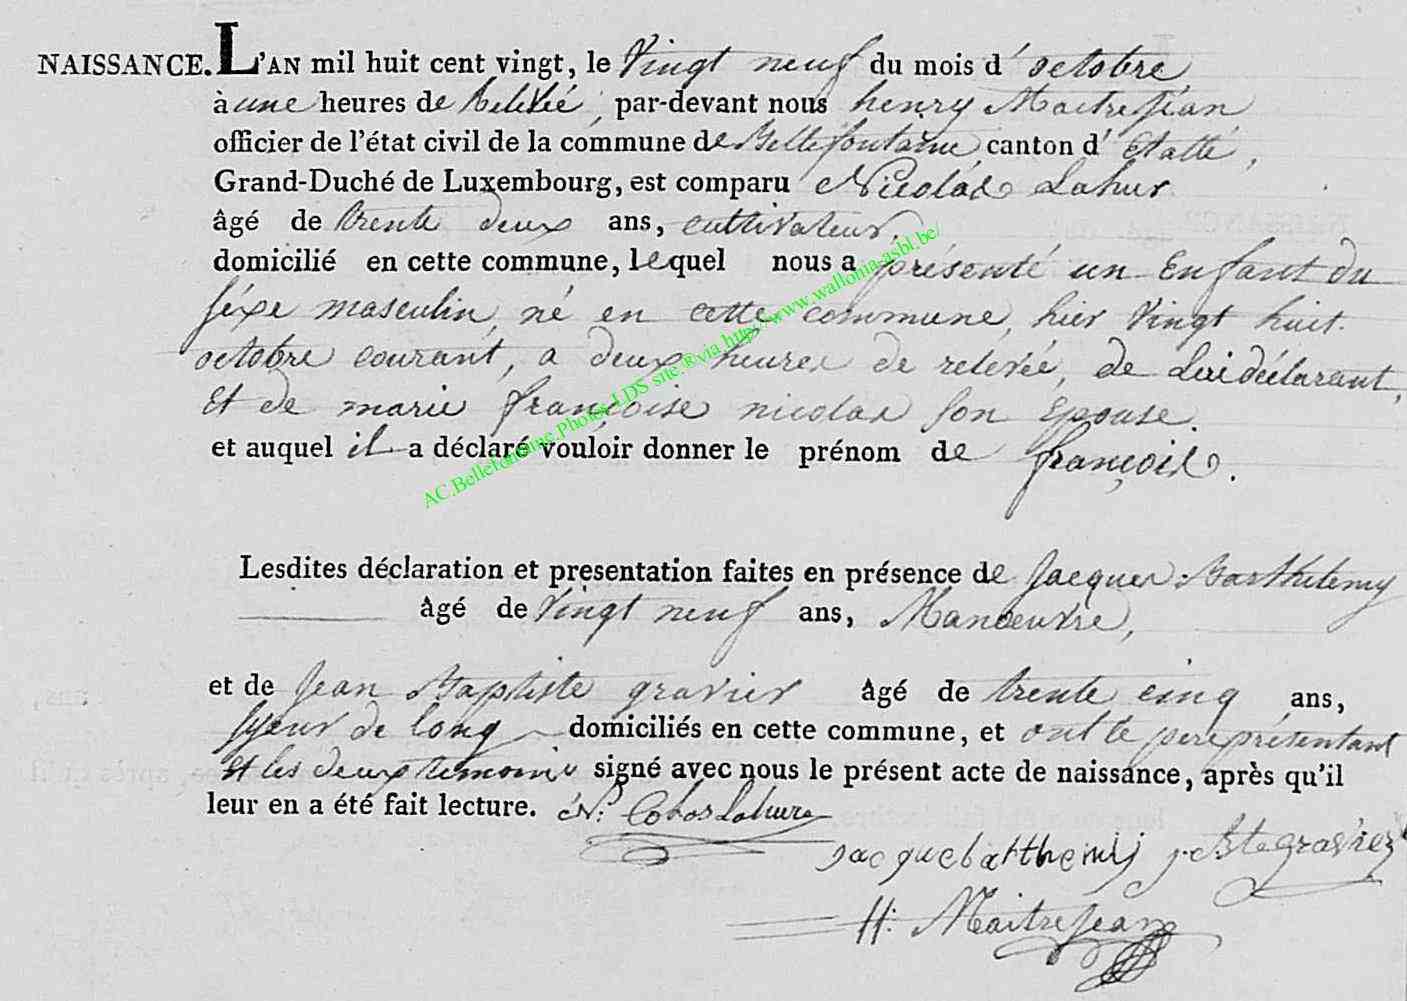 NAISSANCE. L'AN mil huit cent vingt, le Vingt neuf du mois d' octobre
à une heures de Relevée, par-devant nous henry Maitrejean
officier de l'état civil de la commune de Bellefontaine, canton d' Etalle,
Grand-Duché de Luxembourg, est comparu Nicolas Lahur
âgé de trente deux ans, cultivateur,
domicilié en cette commune, lequel nous a présenté un Enfant du
séxe masculin, né en cette commune, hier Vingt huit
octobre courant, a deux heures de relevée, de Lui déclarant,
Et de marie françoise nicolas son Epouse.
et auquel il a déclaré vouloir donner le prénom de françois.
AC.Bellefontaine.Photos.LDS site.®via http://www.wallonia-asbl.be/
Lesdites déclaration et presentation faites en présence de Jacques Barthelemy
âgé de Vingt neuf ans, Manoeuvre,
et de Jean Baptiste gravier âgé de trente cinq ans,
syeur de long domiciliés en cette commune, et ont le pere présentant
Et les deux temoins signé avec nous le présent acte de naissance, après qu'il
leur en a été fait lecture. Lahure
jacque barthemij j. Bte graviez
H: MaitreJean